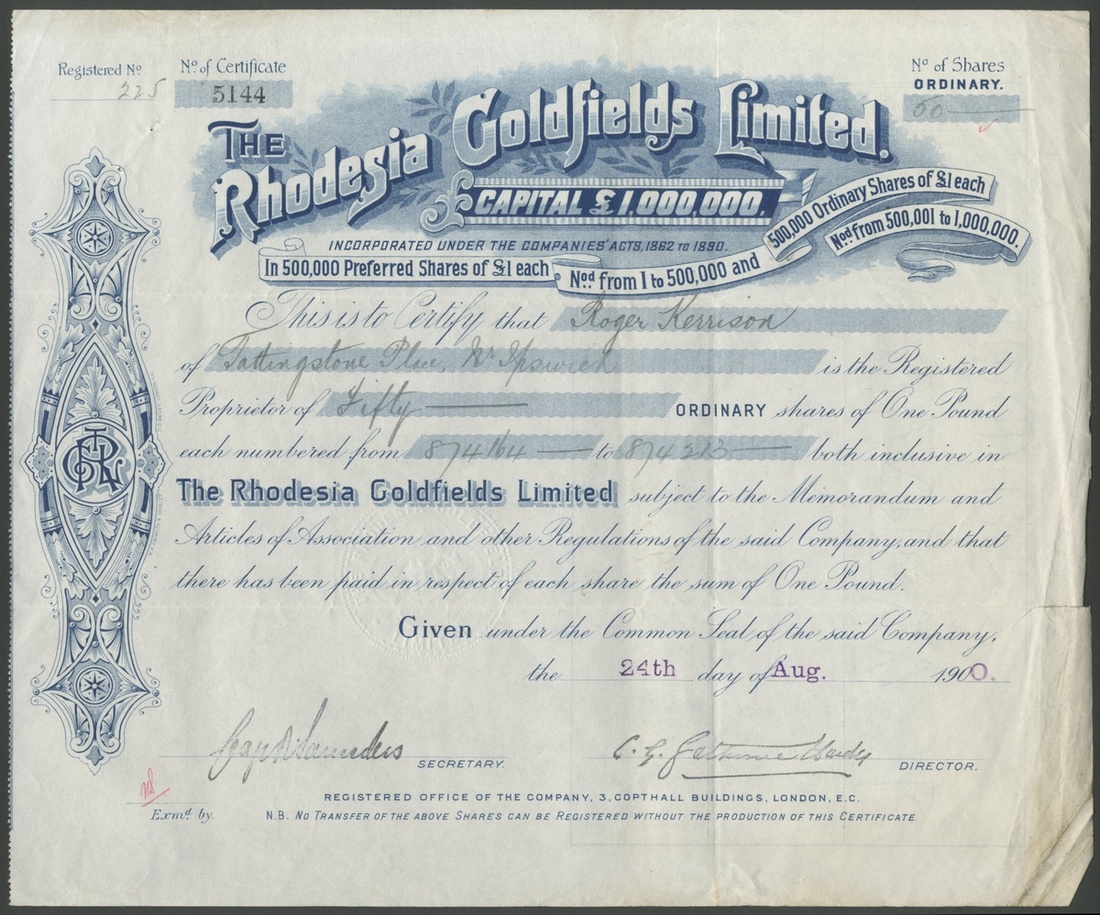 Registered No 225
No of Certificate
5144
No of Shares
ORDINARY.
50
THE
Rhodesia Goldfields Limited.
CAPITAL £1,000,000.
INCORPORATED UNDER THE COMPANIES' ACTS, 1862 TO 1890.
In 500,000 Preferred Shares of £1 each Nod from 1 to 500,000 and
500,000 Ordinary Shares of £1 each
Nod from 500,001 to 1,000,000.
This is to Certify that Roger Kerrison
of Tattingstone Place, Nr Ipswich is the Registered
Proprietor of Fifty ORDINARY shares of One Pound
each numbered from 874164 to 874213 both inclusive in
The Rhodesia Goldfields Limited subject to the Memorandum and
Articles of Association and other Regulations of the said Company, and that
there has been paid in respect of each share the sum of One Pound.
Given under the Common Seal of the said Company,
the 24th day of Aug. 1900.
SECRETARY.
DIRECTOR.
REGISTERED OFFICE OF THE COMPANY, 3, COPTHALL BUILDINGS, LONDON, E.C.
Exmd. by.
N.B. NO TRANSFER OF THE ABOVE SHARES CAN BE REGISTERED WITHOUT THE PRODUCTION OF THIS CERTIFICATE.